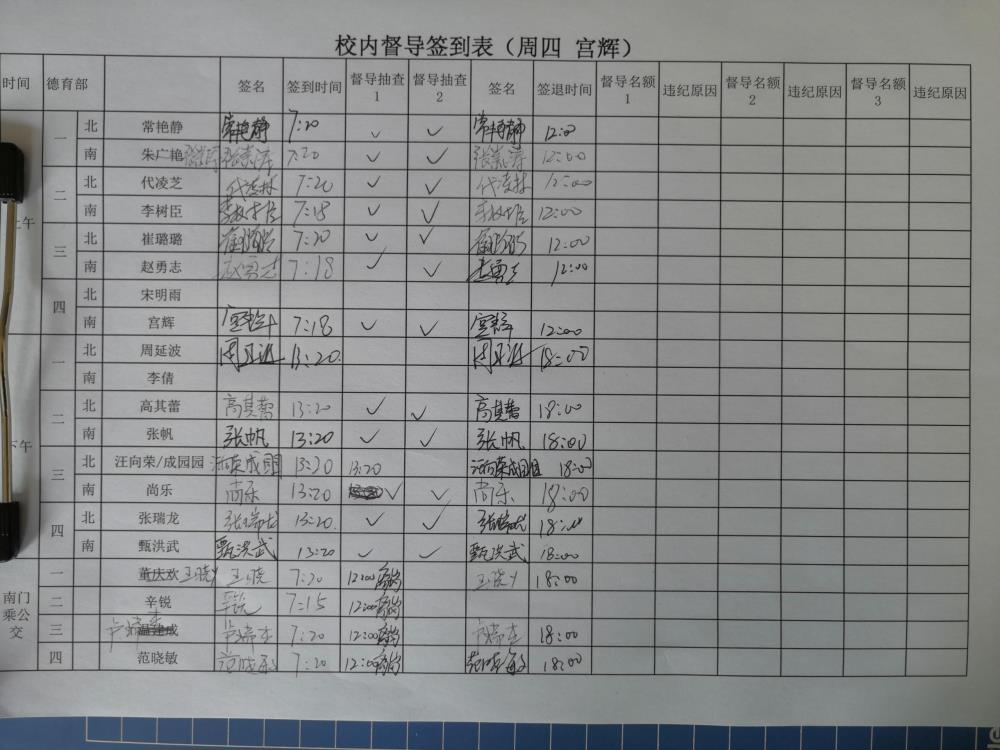 校内督导签到表（周四 宫辉）
时间 德育部 签名 签到时间 督导抽查1 督导抽查2 签名 签退时间 督导名额1 违纪原因 督导名额2 违纪原因 督导名额3 违纪原因
上午
一 北 常艳静 常艳静 7:20 ✓ ✓ 常艳静 12:00
南 朱广艳 7:20 ✓ ✓ 12:00
二 北 代凌芝 7:20 ✓ ✓ 12:00
南 李树臣 李树臣 7:18 ✓ ✓ 12:00
三 北 崔璐璐 崔璐璐 7:20 ✓ ✓ 崔璐璐 12:00
南 赵勇志 赵勇志 7:18 ✓ ✓ 12:00
四 北 宋明雨
南 宫辉 宫辉 7:18 ✓ ✓ 宫辉 12:00
下午
一 北 周延波 周延波 13:20. 周延波 18:00
南 李倩
二 北 高其蕾 高其蕾 13:20 ✓ ✓ 高其蕾 18:00
南 张帆 张帆 13:20 ✓ ✓ 张帆 18:00
三 北 汪向荣/成园园 13:20 13:20 18:00
南 尚乐 尚乐 13:20 ✓ ✓ 尚乐 18:00
四 北 张瑞龙 张瑞龙 13:20. ✓ ✓ 张瑞龙 18:00
南 甄洪武 甄洪武 13:20 ✓ ✓ 甄洪武 18:00
南门乘公交
一 董庆欢 王晓 7:20 12:00 18:00
二 辛锐 辛锐 7:15 12:00
三 温建成 7:20 12:00 18:00
四 范晓敏 范晓敏 7:20 12:00 范晓敏 18:00